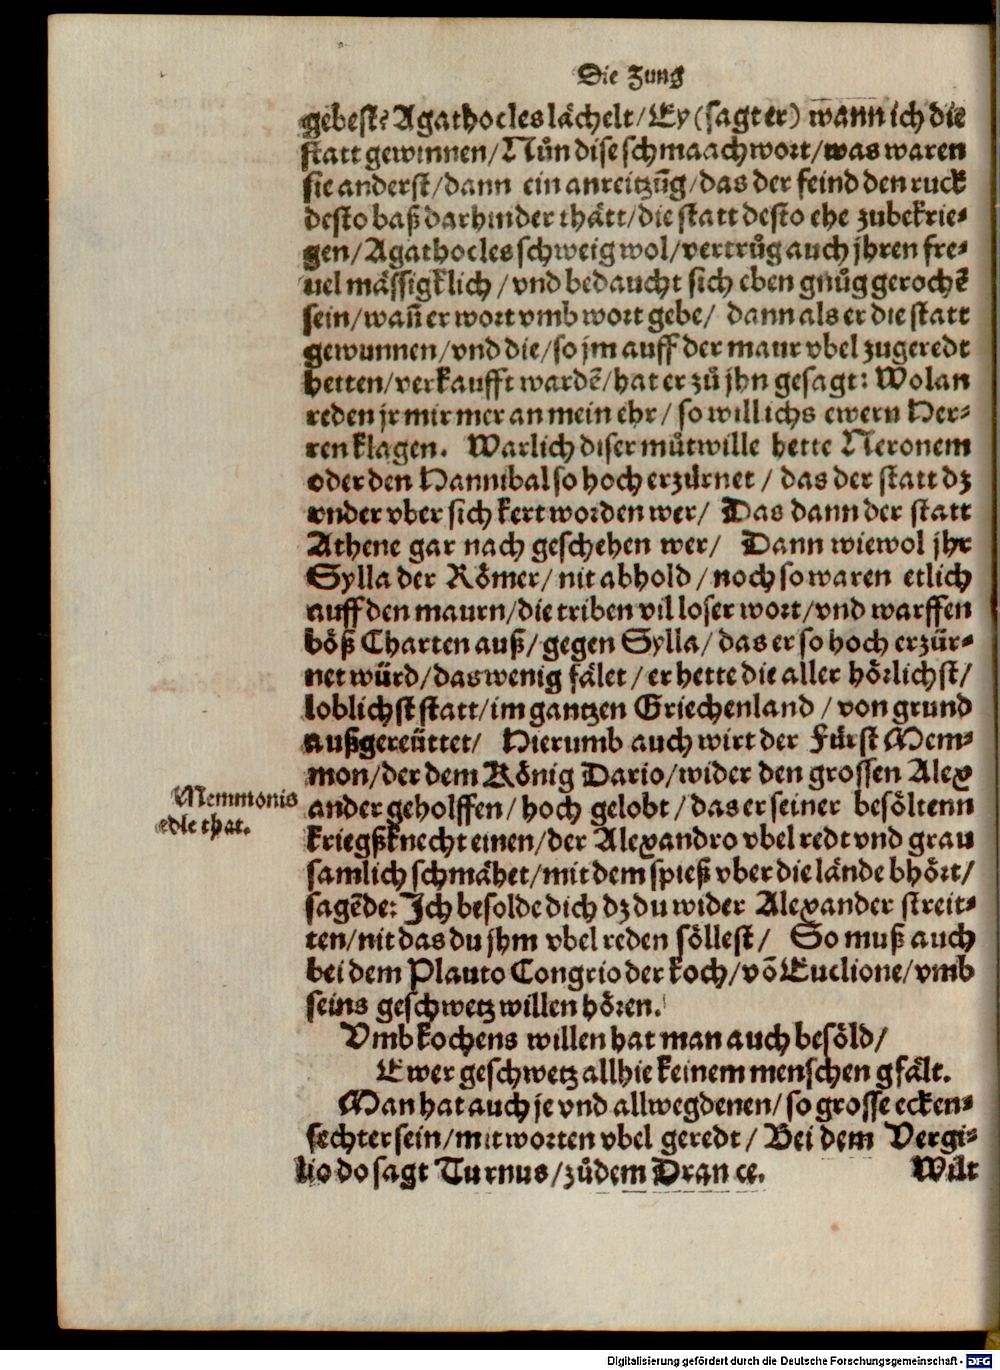 Die Zung
gebest? Agathocles lächelt/ Ey (sagt er) wann ich die
statt gewinnen/ Nůn dise schmaachwort/ was waren
sie anderst/ dann ein anreitzūg/ das der feind den ruck
desto baß darhinder thätt/ die statt desto ehe zubekrie-
gen/ Agathocles schweig wol/ vertrůg auch jhren fre-
uel mässigklich/ vnd bedaucht sich eben gnůg gerochē
sein/ wañ er wort vmb wort gebe/ dann als er die statt
gewunnen/ vnd die/ so jm auff der maur vbel zugeredt
hetten/ verkaufft wardē/ hat er zů jhn gesagt: Wolan
reden jr mir mer an mein ehr/ so will ichs ewern Her-
ren klagen. Warlich diser můtwille hette Neronem
oder den Hannibal so hoch erzürnet/ das der statt dz
vnder vber sich kert worden wer/ Das dann der statt
Athene gar nach geschehen wer/ Dann wiewol jhr
Sylla der Römer/ nit abhold/ noch so waren etlich
auff den maurn/ die triben vil loser wort/ vnd warffen
böß Charten auß/ gegen Sylla/ das er so hoch erzür-
net würd/ das wenig fälet/ er hette die aller hörlichst/
loblichst statt/ im gantzen Griechenland/ von grund
außgereüttet/ Hierumb auch wirt der Fürst Mem-
mon/ der dem König Dario/ wider den grossen Alex
ander geholffen/ hoch gelobt/ das er seiner besöltenn
Memmonis
edle that.
kriegßknecht einen/ der Alexandro vbel redt vnd grau
samlich schmähet/ mit dem spieß vber die lände bhört/
sagēde: Ich besolde dich dz du wider Alexander streit-
ten/ nit das du jhm vbel reden söllest/ So muß auch
bei dem Plauto Congrio der koch/ vō Euclione/ vmb
seins geschwetz willen hören.
Vmb kochens willen hat man auch besöld/
Ewer geschwetz allhie keinem menschen gfält.
Man hat auch je vnd allweg denen/ so grosse ecken-
fechter sein/ mit worten vbel geredt/ Bei dem Vergi-
lio do sagt Turnus/ zůdem Drance.
Wilt
Digitalisierung gefördert durch die Deutsche Forschungsgemeinschaft - DFG